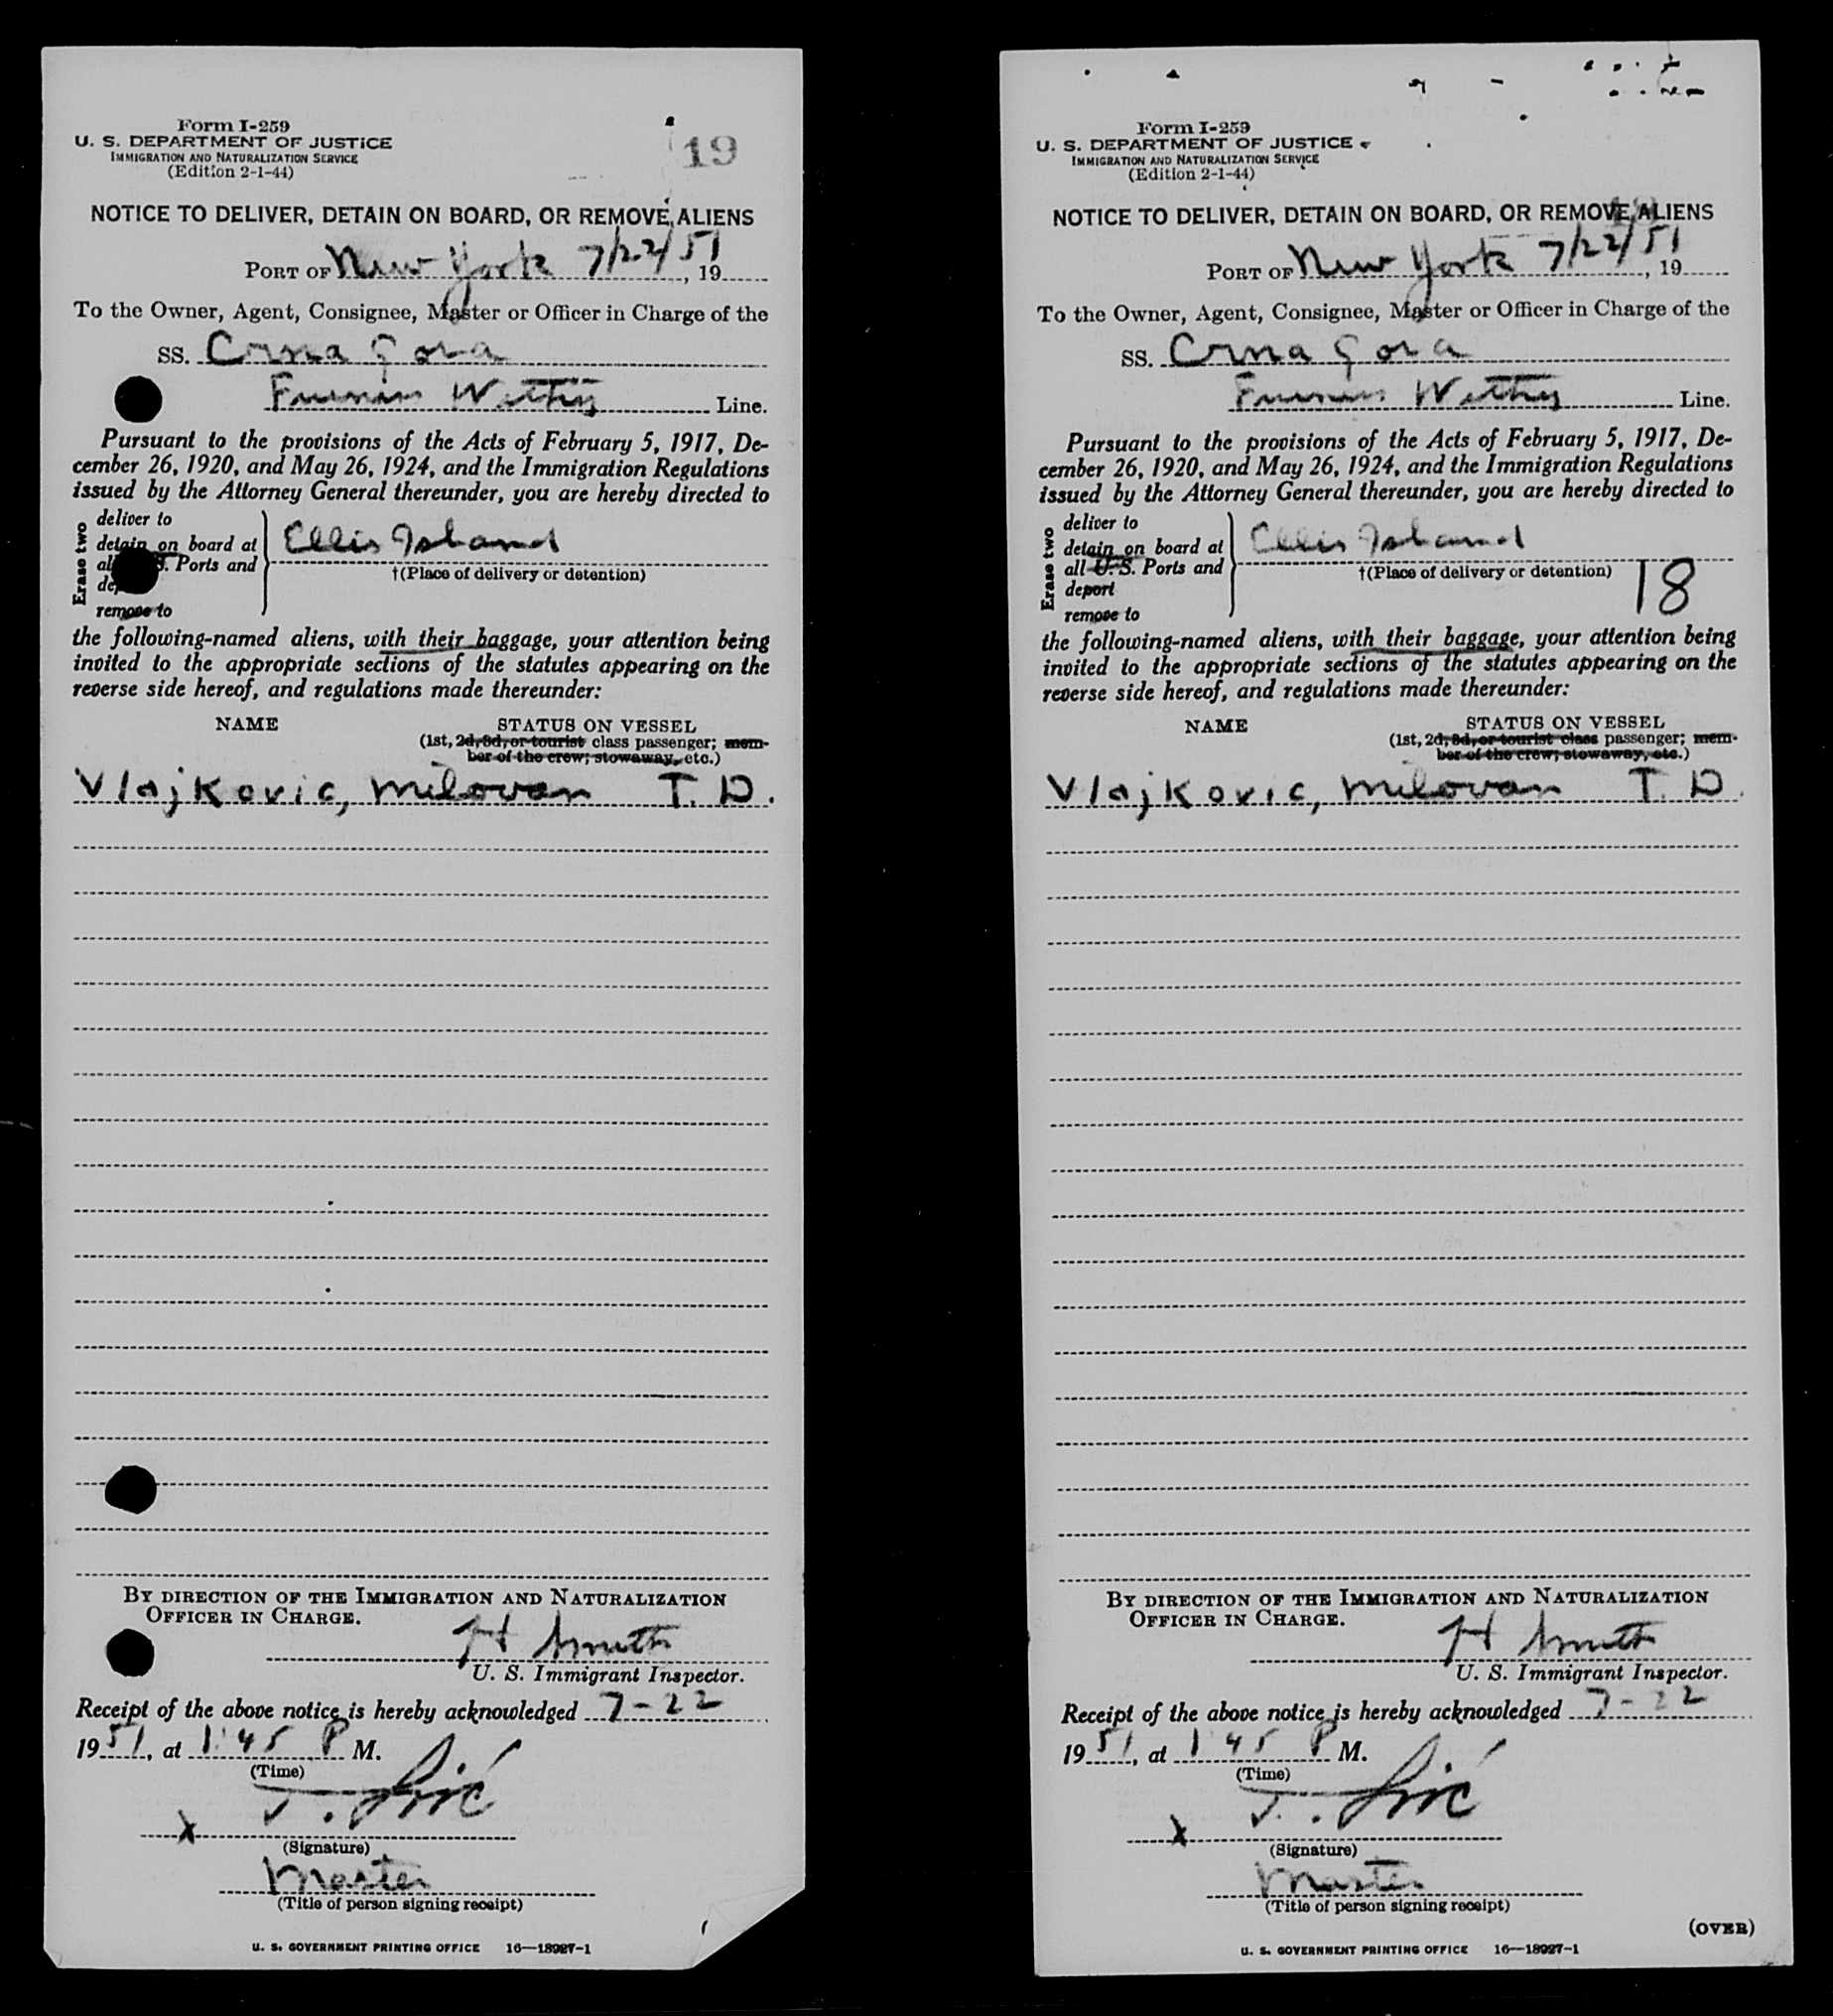 Form I-259
U. S. DEPARTMENT OF JUSTICE
IMMIGRATION AND NATURALIZATION SERVICE
(Edition 2-1-44)
19
NOTICE TO DELIVER, DETAIN ON BOARD, OR REMOVE ALIENS
PORT OF New York 7/22/51, 19
To the Owner, Agent, Consignee, Master or Officer in Charge of the
SS. Crna Gora
Furness Withy Line.
Pursuant to the provisions of the Acts of February 5, 1917, De-
cember 26, 1920, and May 26, 1924, and the Immigration Regulations
issued by the Attorney General thereunder, you are hereby directed to
Erase two
deliver to
detain on board at
Ports and
remove to
Ellis Island
†(Place of delivery or detention)
the following-named aliens, with their baggage, your attention being
invited to the appropriate sections of the statutes appearing on the
reverse side hereof, and regulations made thereunder:
NAME STATUS ON VESSEL
(1st, 2d, 3d, or tourist class passenger; mem-
ber of the crew; stowaway, etc.)
Vlajkovic, Milovan T. D.
BY DIRECTION OF THE IMMIGRATION AND NATURALIZATION
OFFICER IN CHARGE.
H Smith
U. S. Immigrant Inspector.
Receipt of the above notice is hereby acknowledged 7-22
1951, at 1:45 P M.
(Time)
X
(Signature)
Master
(Title of person signing receipt)
U. S. GOVERNMENT PRINTING OFFICE 16—18927-1
Form I-259
U. S. DEPARTMENT OF JUSTICE
IMMIGRATION AND NATURALIZATION SERVICE
(Edition 2-1-44)
NOTICE TO DELIVER, DETAIN ON BOARD, OR REMOVE ALIENS
PORT OF New York 7/22/51, 19
To the Owner, Agent, Consignee, Master or Officer in Charge of the
SS. Crna Gora
Furness Withy Line.
Pursuant to the provisions of the Acts of February 5, 1917, De-
cember 26, 1920, and May 26, 1924, and the Immigration Regulations
issued by the Attorney General thereunder, you are hereby directed to
Erase two
deliver to
detain on board at
all U. S. Ports and
deport
remove to
Ellis Island
†(Place of delivery or detention)
18
the following-named aliens, with their baggage, your attention being
invited to the appropriate sections of the statutes appearing on the
reverse side hereof, and regulations made thereunder:
NAME STATUS ON VESSEL
(1st, 2d, 3d, or tourist class passenger; mem-
ber of the crew; stowaway, etc.)
Vlajkovic, Milovan T. D.
BY DIRECTION OF THE IMMIGRATION AND NATURALIZATION
OFFICER IN CHARGE.
H Smith
U. S. Immigrant Inspector.
Receipt of the above notice is hereby acknowledged 7-22
1951, at 1 45 P M.
(Time)
X
(Signature)
Master
(Title of person signing receipt)
(OVER)
U. S. GOVERNMENT PRINTING OFFICE 16—18927-1